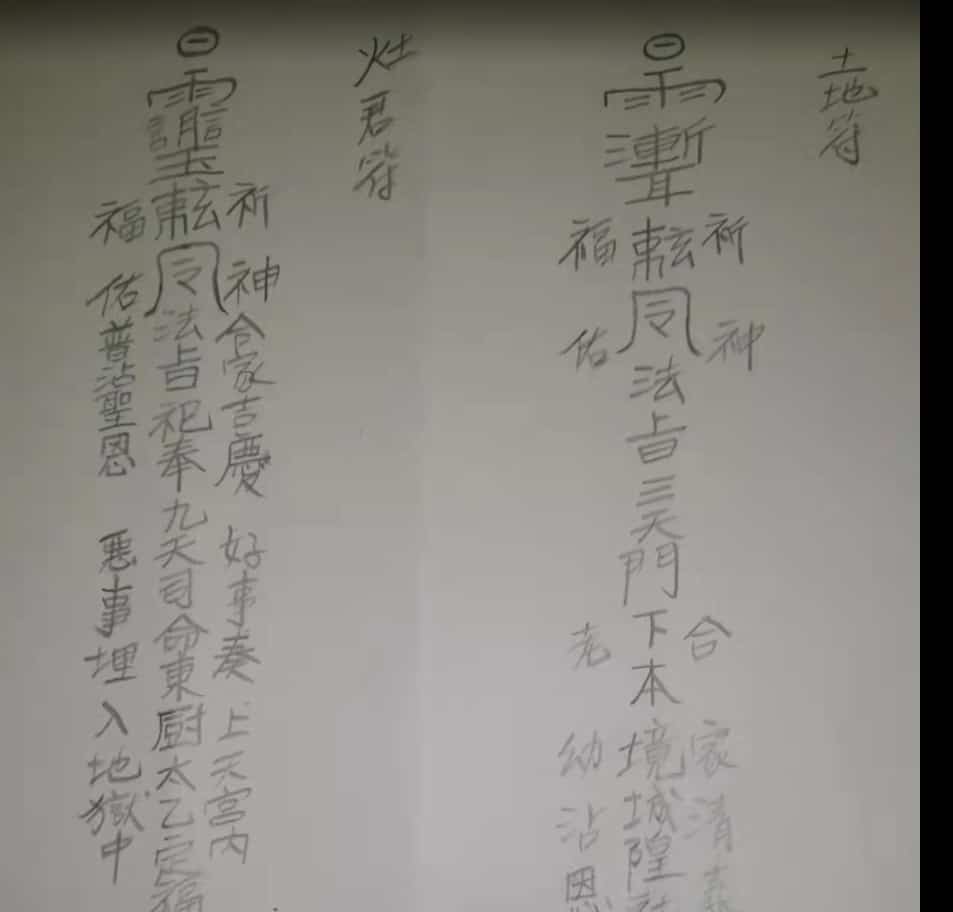 土地符
祈神
合家清
敕令法旨三天門下本境城隍
福佑
老幼沾恩
灶君符
祈神合家吉慶 好事奏上天宮內
靈敕令法旨祀奉九天司命東厨太乙定福
福佑普沾聖恩 惡事埋入地獄中